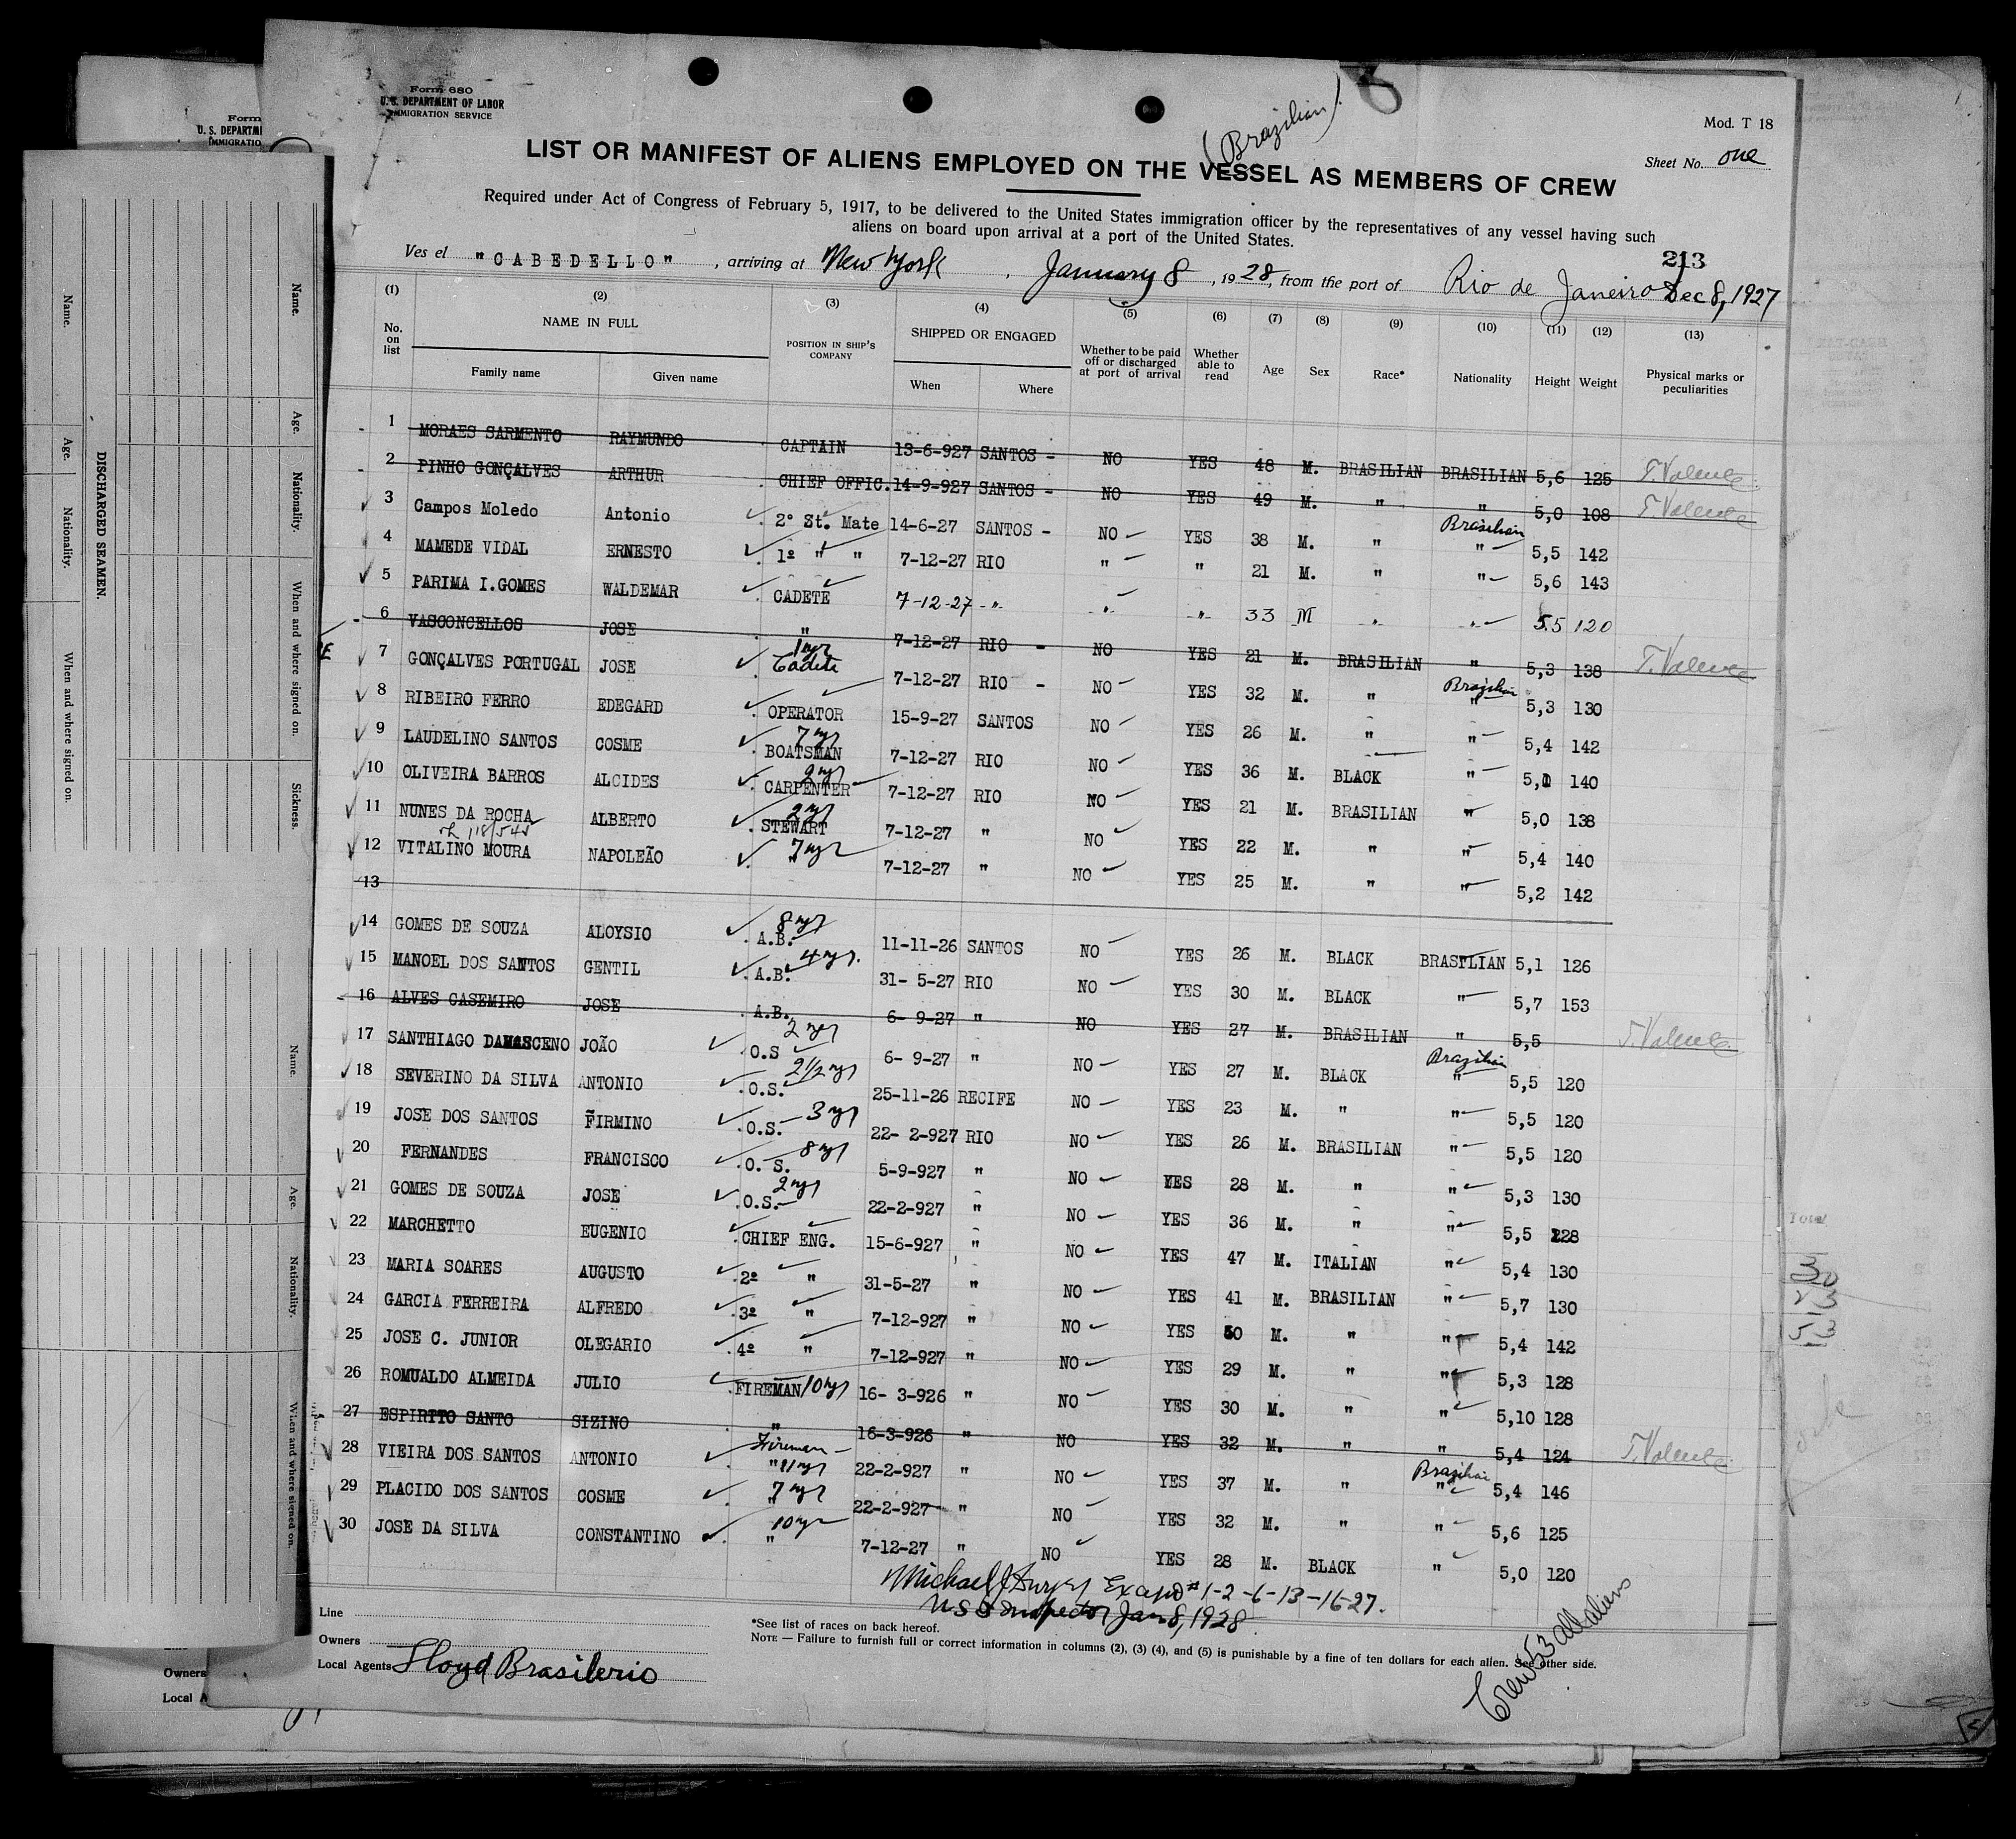 Form 680
U. S. DEPARTMENT OF LABOR
IMMIGRATION SERVICE
Mod. T 18
Sheet No. one
(Brazilian)
LIST OR MANIFEST OF ALIENS EMPLOYED ON THE VESSEL AS MEMBERS OF CREW
Required under Act of Congress of February 5, 1917, to be delivered to the United States immigration officer by the representatives of any vessel having such
aliens on board upon arrival at a port of the United States.
213
Ves el "CABEDELLO", arriving at New York, January 8, 1928, from the port of Rio de Janeiro Dec 8, 1927
(1) (2) (3) (4) (5) (6) (7) (8) (9) (10) (11) (12) (13)
No. on list NAME IN FULL Family name Given name POSITION IN SHIP'S COMPANY SHIPPED OR ENGAGED When Where Whether to be paid off or discharged at port of arrival Whether able to read Age Sex Race* Nationality Height Weight Physical marks or peculiarities
1 MORAES SARMENTO RAYMUNDO CAPTAIN 13-6-927 SANTOS - NO YES 48 M. BRASILIAN BRASILIAN 5,6 125 T. Valente
2 PINHO GONÇALVES ARTHUR CHIEF OFFIC. 14-9-927 SANTOS - NO YES 49 M. " " 5,0 108 T. Valente
3 Campos Moledo Antonio 2º St. Mate 14-6-27 SANTOS - NO YES 38 M. " Brasilian " 5,5 142
4 MAMEDE VIDAL ERNESTO 1º " " 7-12-27 RIO " " 21 M. " " 5,6 143
5 PARIMA I.GOMES WALDEMAR CADETE 7-12-27 -"- " -"- 33 M " " 5.5 120
6 VASCONCELLOS JOSE " 7-12-27 RIO - NO YES 21 M. BRASILIAN " 5,3 138 T. Valente
7 GONÇALVES PORTUGAL JOSE 1 yr Cadete 7-12-27 RIO - NO YES 32 M. " Brazilian " 5,3 130
8 RIBEIRO FERRO EDEGARD OPERATOR 15-9-27 SANTOS NO YES 26 M. " " 5,4 142
9 LAUDELINO SANTOS COSME 7 yr BOATSMAN 7-12-27 RIO NO YES 36 M. BLACK " 5,0 140
10 OLIVEIRA BARROS ALCIDES 2 yr CARPENTER 7-12-27 RIO NO YES 21 M. BRASILIAN " 5,0 138
11 NUNES DA ROCHA ALBERTO 2 yr STEWART 7-12-27 " NO YES 22 M. " " 5,4 140
12 VITALINO MOURA NAPOLEÃO 7 yr " 7-12-27 " NO YES 25 M. " " 5,2 142
13
14 GOMES DE SOUZA ALOYSIO 8 yr A.B. 11-11-26 SANTOS NO YES 26 M. BLACK BRASILIAN 5,1 126
15 MANOEL DOS SANTOS GENTIL 4 yr. A.B. 31- 5-27 RIO NO YES 30 M. BLACK " 5,7 153
16 ALVES CASEMIRO JOSE A.B. 6- 9-27 " NO YES 27 M. BRASILIAN " 5,5 T. Valente
17 SANTHIAGO DAMASCENO JOÃO 2 yr O.S 6- 9-27 " NO YES 27 M. BLACK Brazilian " 5,5 120
18 SEVERINO DA SILVA ANTONIO 2 1/2 yr O.S. 25-11-26 RECIFE NO YES 23 M. " " 5,5 120
19 JOSE DOS SANTOS FIRMINO O.S. 3 yr 22- 2-927 RIO NO YES 26 M. BRASILIAN " 5,5 120
20 FERNANDES FRANCISCO O. S. 8 yr 5-9-927 " NO YES 28 M. " " 5,3 130
21 GOMES DE SOUZA JOSE 2 yr O.S. 22-2-927 " NO YES 36 M. " " 5,5 128
22 MARCHETTO EUGENIO CHIEF ENG. 15-6-927 " NO YES 47 M. ITALIAN " 5,4 130
23 MARIA SOARES AUGUSTO 2º " 31-5-27 " NO YES 41 M. BRASILIAN " 5,7 130
24 GARCIA FERREIRA ALFREDO 3º " 7-12-927 " NO YES 50 M. " " 5,4 142
25 JOSE C. JUNIOR OLEGARIO 4º " 7-12-927 " NO YES 29 M. " " 5,3 128
26 ROMUALDO ALMEIDA JULIO FIREMAN 10 yr 16- 3-926 " NO YES 30 M. " " 5,10 128
27 ESPIRITO SANTO SIZINO " 16-3-926 " NO YES 32 M. " " 5,4 124 T. Valente
28 VIEIRA DOS SANTOS ANTONIO Fireman " 11 yr 22-2-927 " NO YES 37 M. " Brazilian " 5,4 146
29 PLACIDO DOS SANTOS COSME 7 yr " 22-2-927 " NO YES 32 M. " " 5,6 125
30 JOSE DA SILVA CONSTANTINO 10 yr " 7-12-27 " NO YES 28 M. BLACK " 5,0 120
Michael J. #1-2-6-13-16-27.
U S Inspector Jan 8, 1928
Line
Owners
Local Agents Lloyd Brasilerio
*See list of races on back hereof.
NOTE — Failure to furnish full or correct information in columns (2), (3) (4), and (5) is punishable by a fine of ten dollars for each alien. See other side.
Crew 53 all aliens
Form
U. S. DEPARTM
IMMIGRATIO
DISCHARGED SEAMEN.
Name. Age. Nationality. When and where signed on.
Name. Age. Nationality. When and where signed on. Sickness.
Name. Age. Nationality. When and where signed on.
Owners
Local A
Total
30
23
53